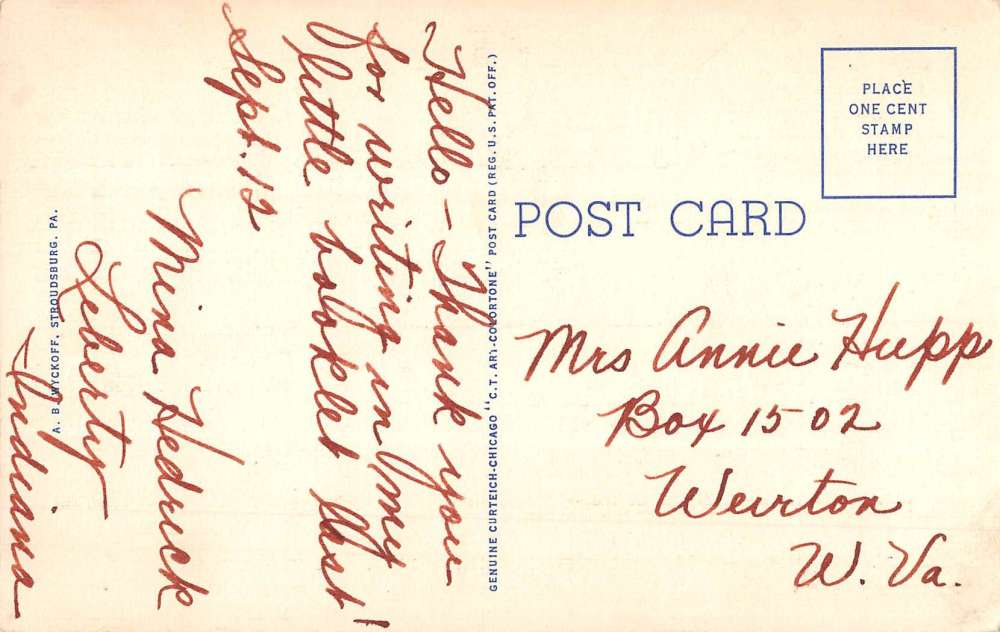 Hello – Thank you
for writing in my
little booklet
Sept. 12
Mina Hedrick
Liberty
Indiana
A. B. WYCKOFF, STROUDSBURG, PA.
GENUINE CURTEICH-CHICAGO "C.T. ART-COLORTONE" POST CARD (REG. U.S. PAT. OFF.)
PLACE
ONE CENT
STAMP
HERE
POST CARD
Mrs Annie Hupp
Box 1502
Weirton
W. Va.